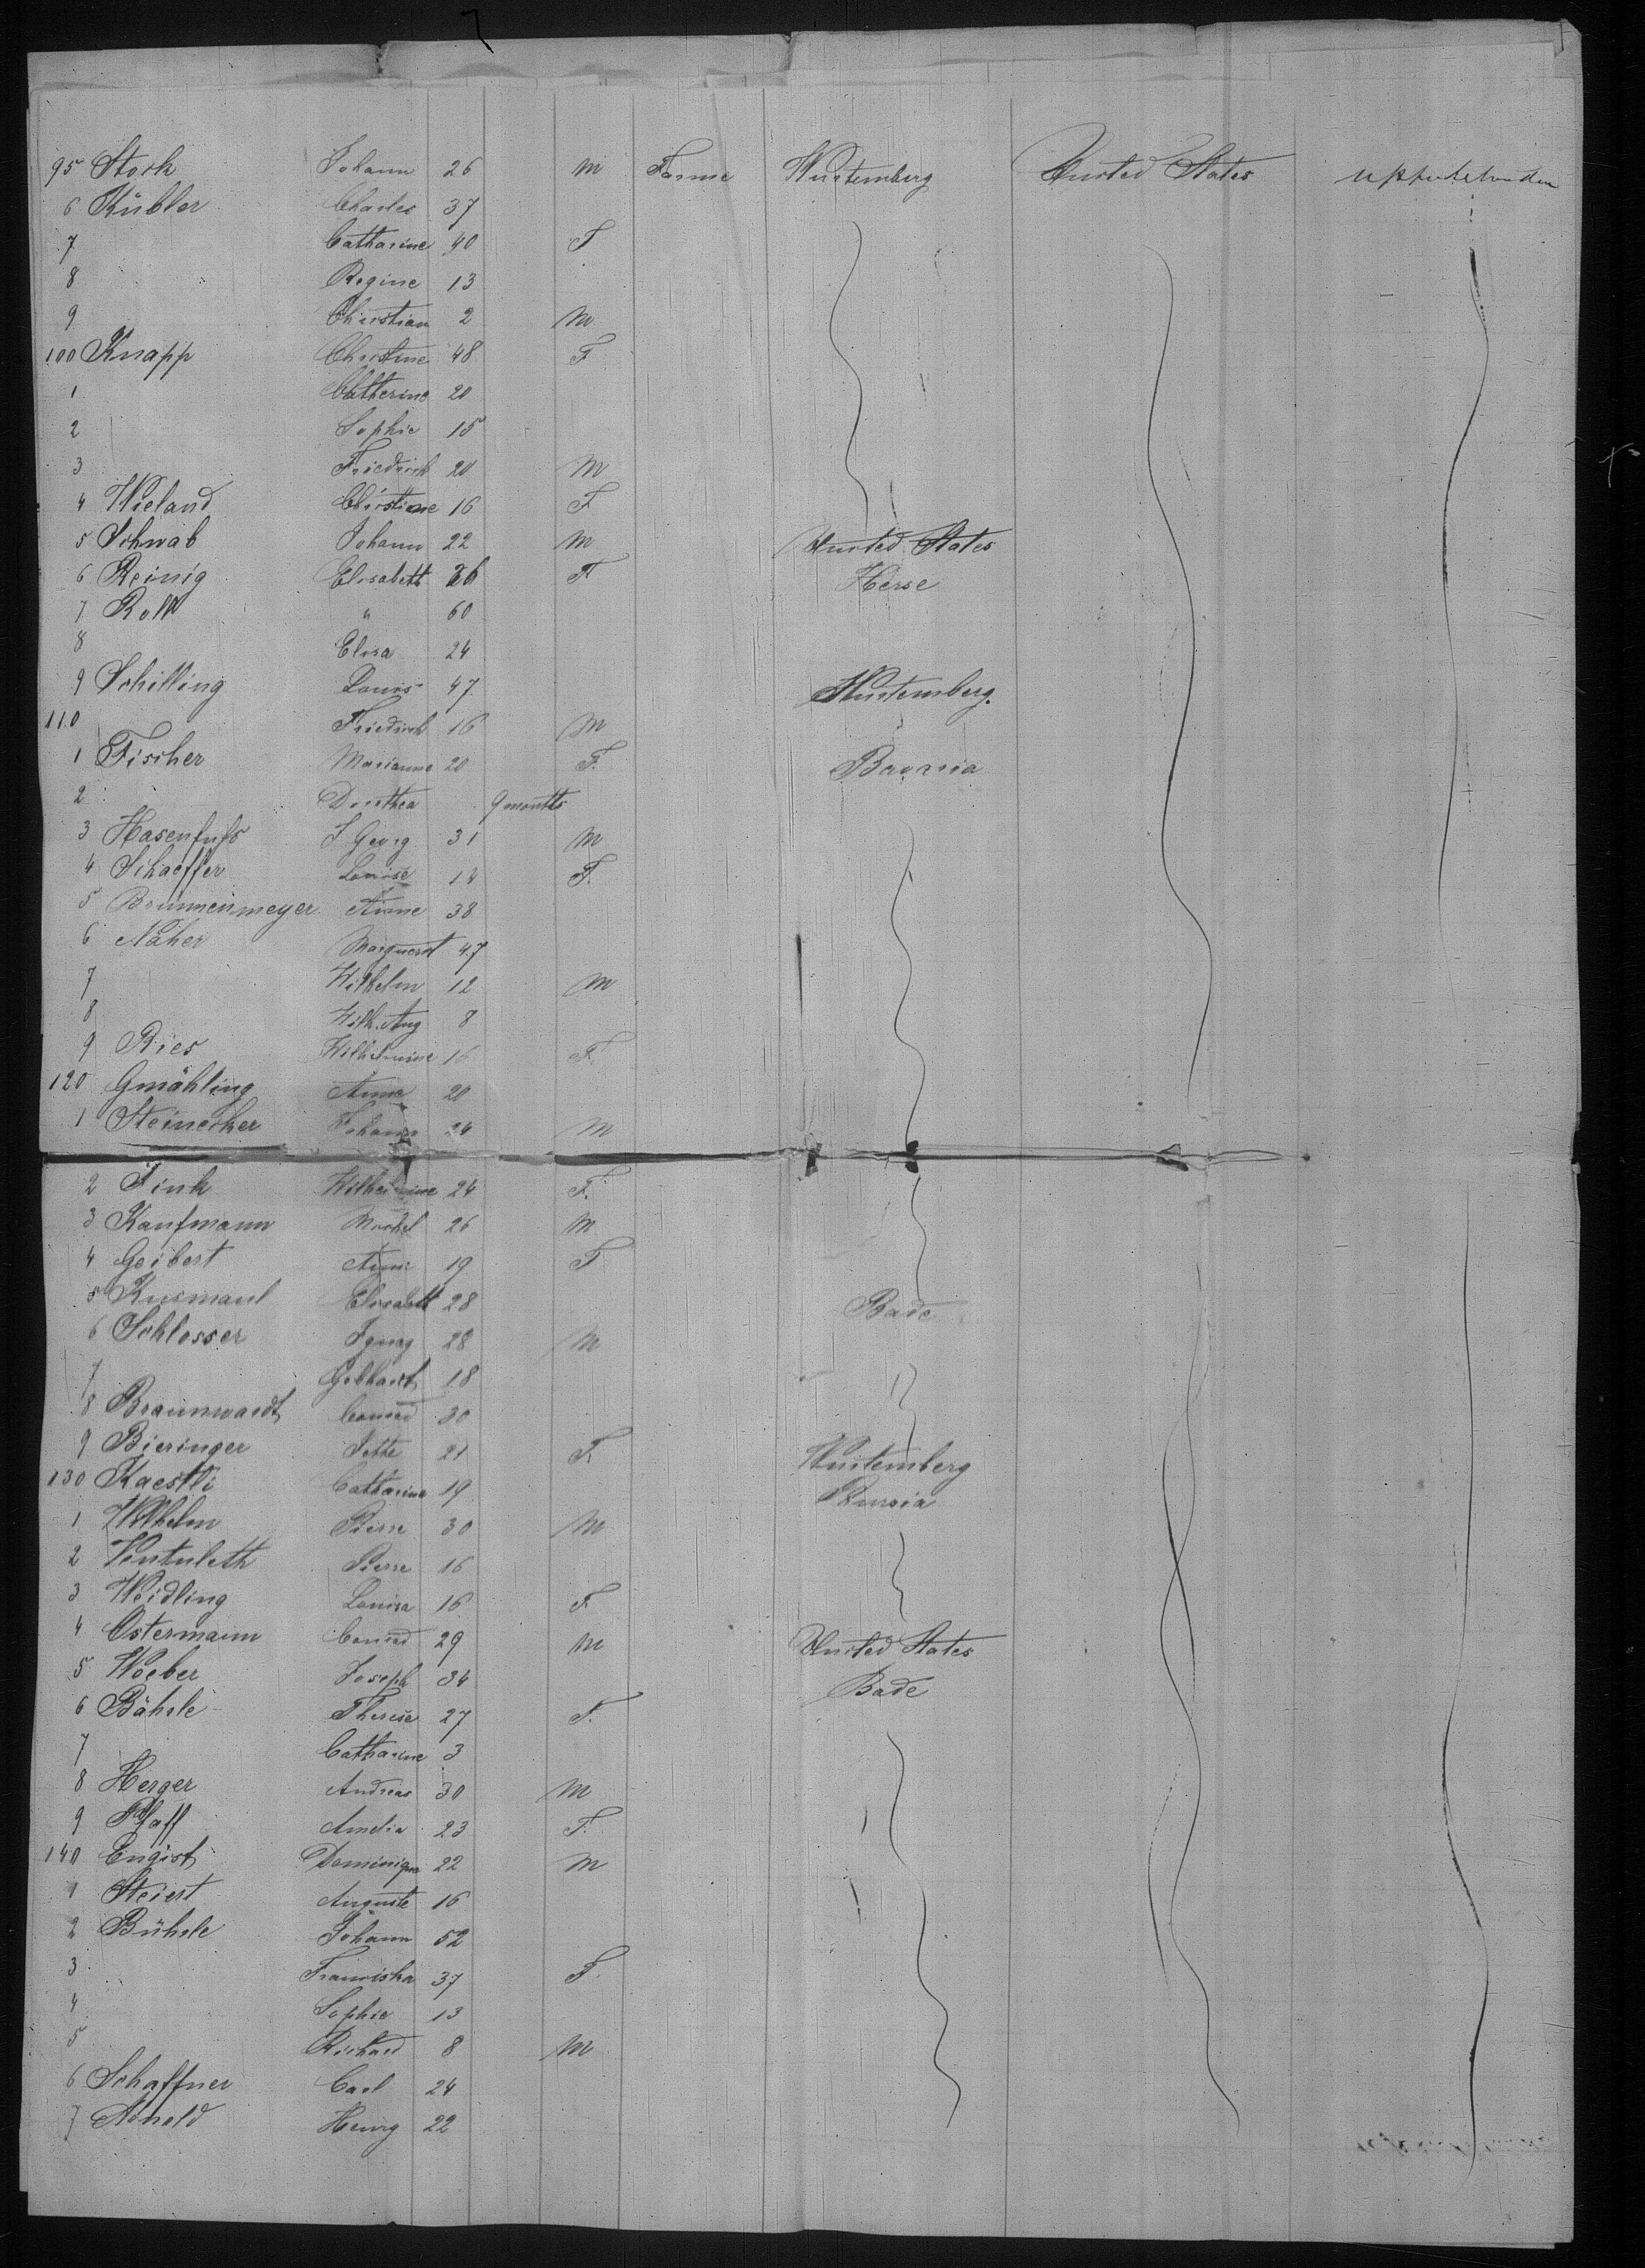 95 Stork Johann 26 M Farme Wurtemberg United States upperbetweendeck
6 Kübler Charles 37
7 Catharine 40 F
8 Regine 13
9 Christian 2 M
100 Knapp Christine 48 F
1 Catherine 20
2 Sophie 15
3 Friedrich 20 M
4 Wieland Christine 16 F
5 Schwab Johann 22 M United States
6 Reinig Elisabeth 26 F Hesse
7 Roll " 60
8 Elisa 24
9 Schilling Louis 47 Wurtemberg.
110 Friedrich 16 M
1 Fischer Marianna 20 F. Bavaria
2 Dorothea 9 months
3 Hasenfuſs J Georg 31 M
4 Schaeffer Louise 18 F.
5 Brunnenmeyer Anne 38
6 Näher Marguerit 47
7 Wilhelm 12 M
8 Wilh. Aug 8
9 Ries Wilhelmine 16 F.
120 Gmähling Anna 20
1 Steinecker Johann 24 M
2 Fink Wilhelmine 24 F.
3 Kaufmann Michel 26 M
4 Geibert Anna 19 F
5 Kusmaul Elisabeth 28 Bade
6 Schlosser Igurg 28 M
7 Gebhart 18
8 Braunwardt Conrad 30
9 Bieringer Jette 21 F. Wurtemberg
130 Kaestli Catharina 19 Prussia
1 Wilhelm Pierre 30 M
2 Ventuleth Pierre 16
3 Weidling Louisa 16 F
4 Ostermann Conrad 29 M United States
5 Weber Joseph 34 Bade
6 Bährle Therese 27 F.
7 Catharine 3
8 Herger Andreas 30 M
9 Pfaff Amelia 23 F.
140 Engist Dominique 22 M
1 Steiert Auguste 16
2 Bührle Johann 52
3 Franziska 37 F.
4 Sophie 13
5 Richard 8 M
6 Schaffner Carl 24
7 Arnold Henry 22